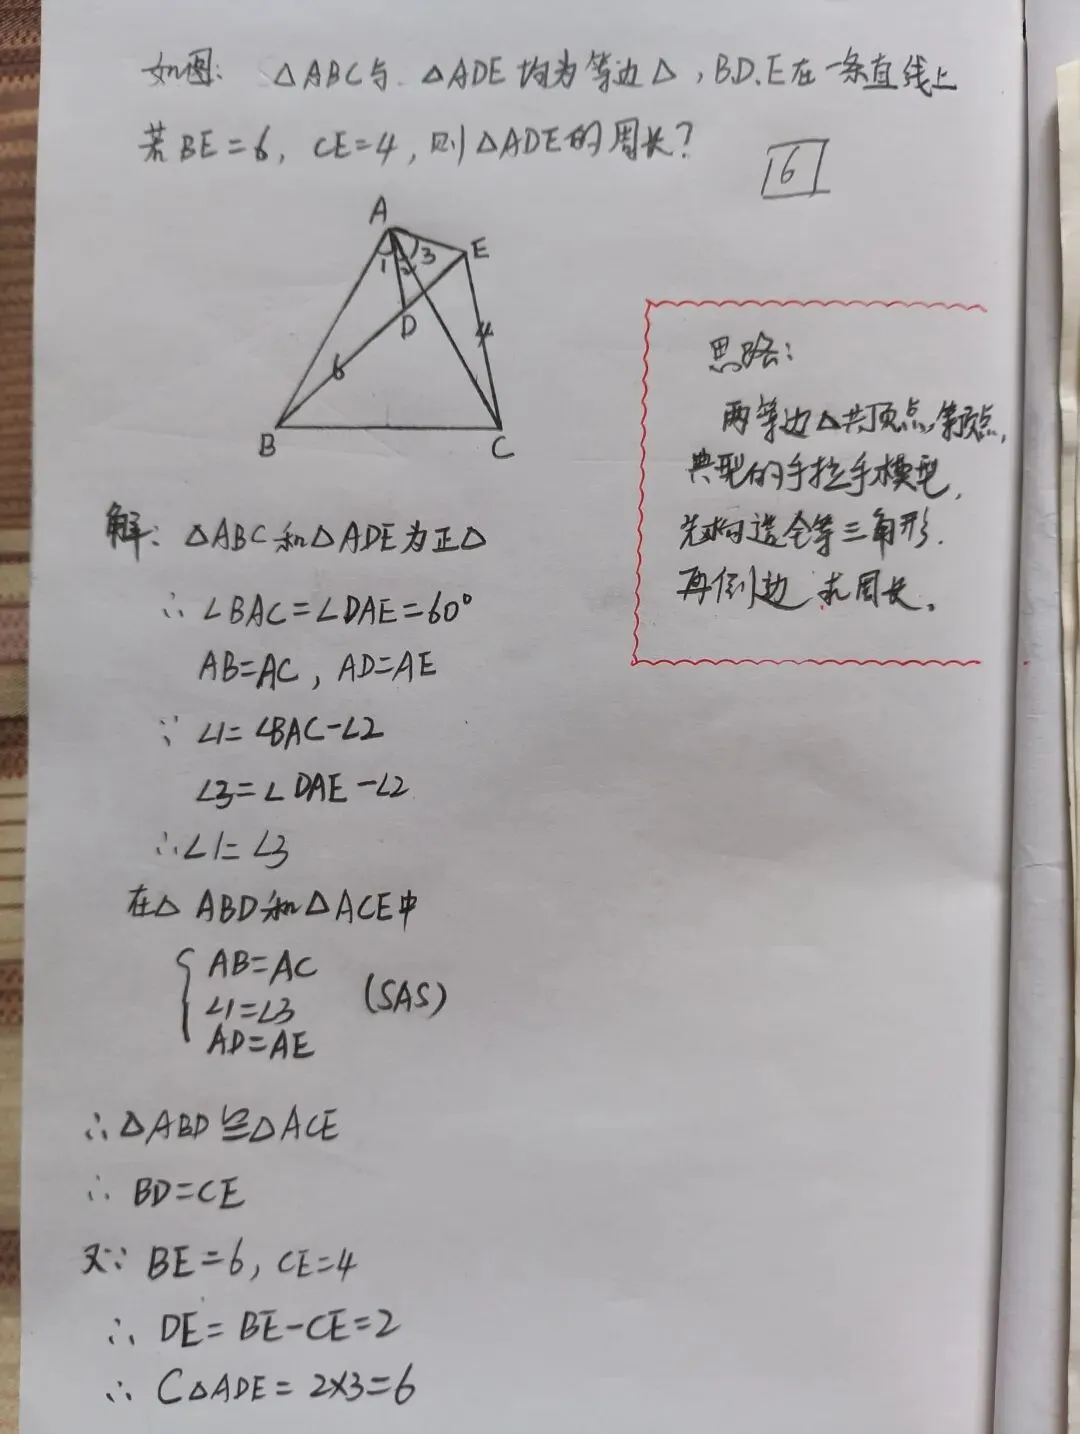 如图: △ABC与△ADE均为等边△,B.D.E在一条直线上
若BE=6, CE=4,则△ADE的周长?
6
A
E
1
2
3
D
4
6
B
C
思路:
两等边△共顶点,等顶点,
典型的手拉手模型,
先构造全等三角形.
再倒边 求周长。
解: △ABC和△ADE为正△
∴∠BAC=∠DAE=60°
AB=AC, AD=AE
∵∠1=∠BAC-∠2
∠3=∠DAE-∠2
∴∠1=∠3
在△ABD和△ACE中
AB=AC
∠1=∠3 (SAS)
AD=AE
∴△ABD≌△ACE
∴BD=CE
又∵BE=6, CE=4
∴DE=BE-CE=2
∴C△ADE=2×3=6